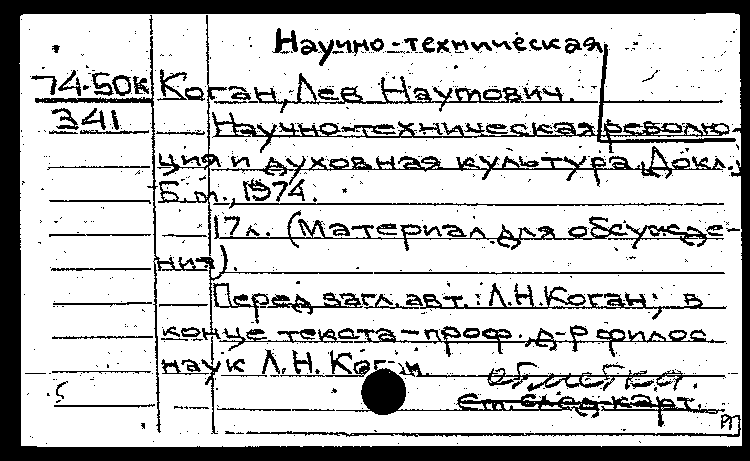 Научно-техническая
74-50к Коган, Лев Наумович.
341 Научно-техническая револю-
ция и духовная культура. Докл.
Б.м., 1974.
17л. (Материал для обсужде-
ния).
Перед загл. авт.: Л.Н.Коган; в
конце текста-проф., д-р филос.
наук Л.Н. Коган.
отметка.
5 См. след. карт.
РП